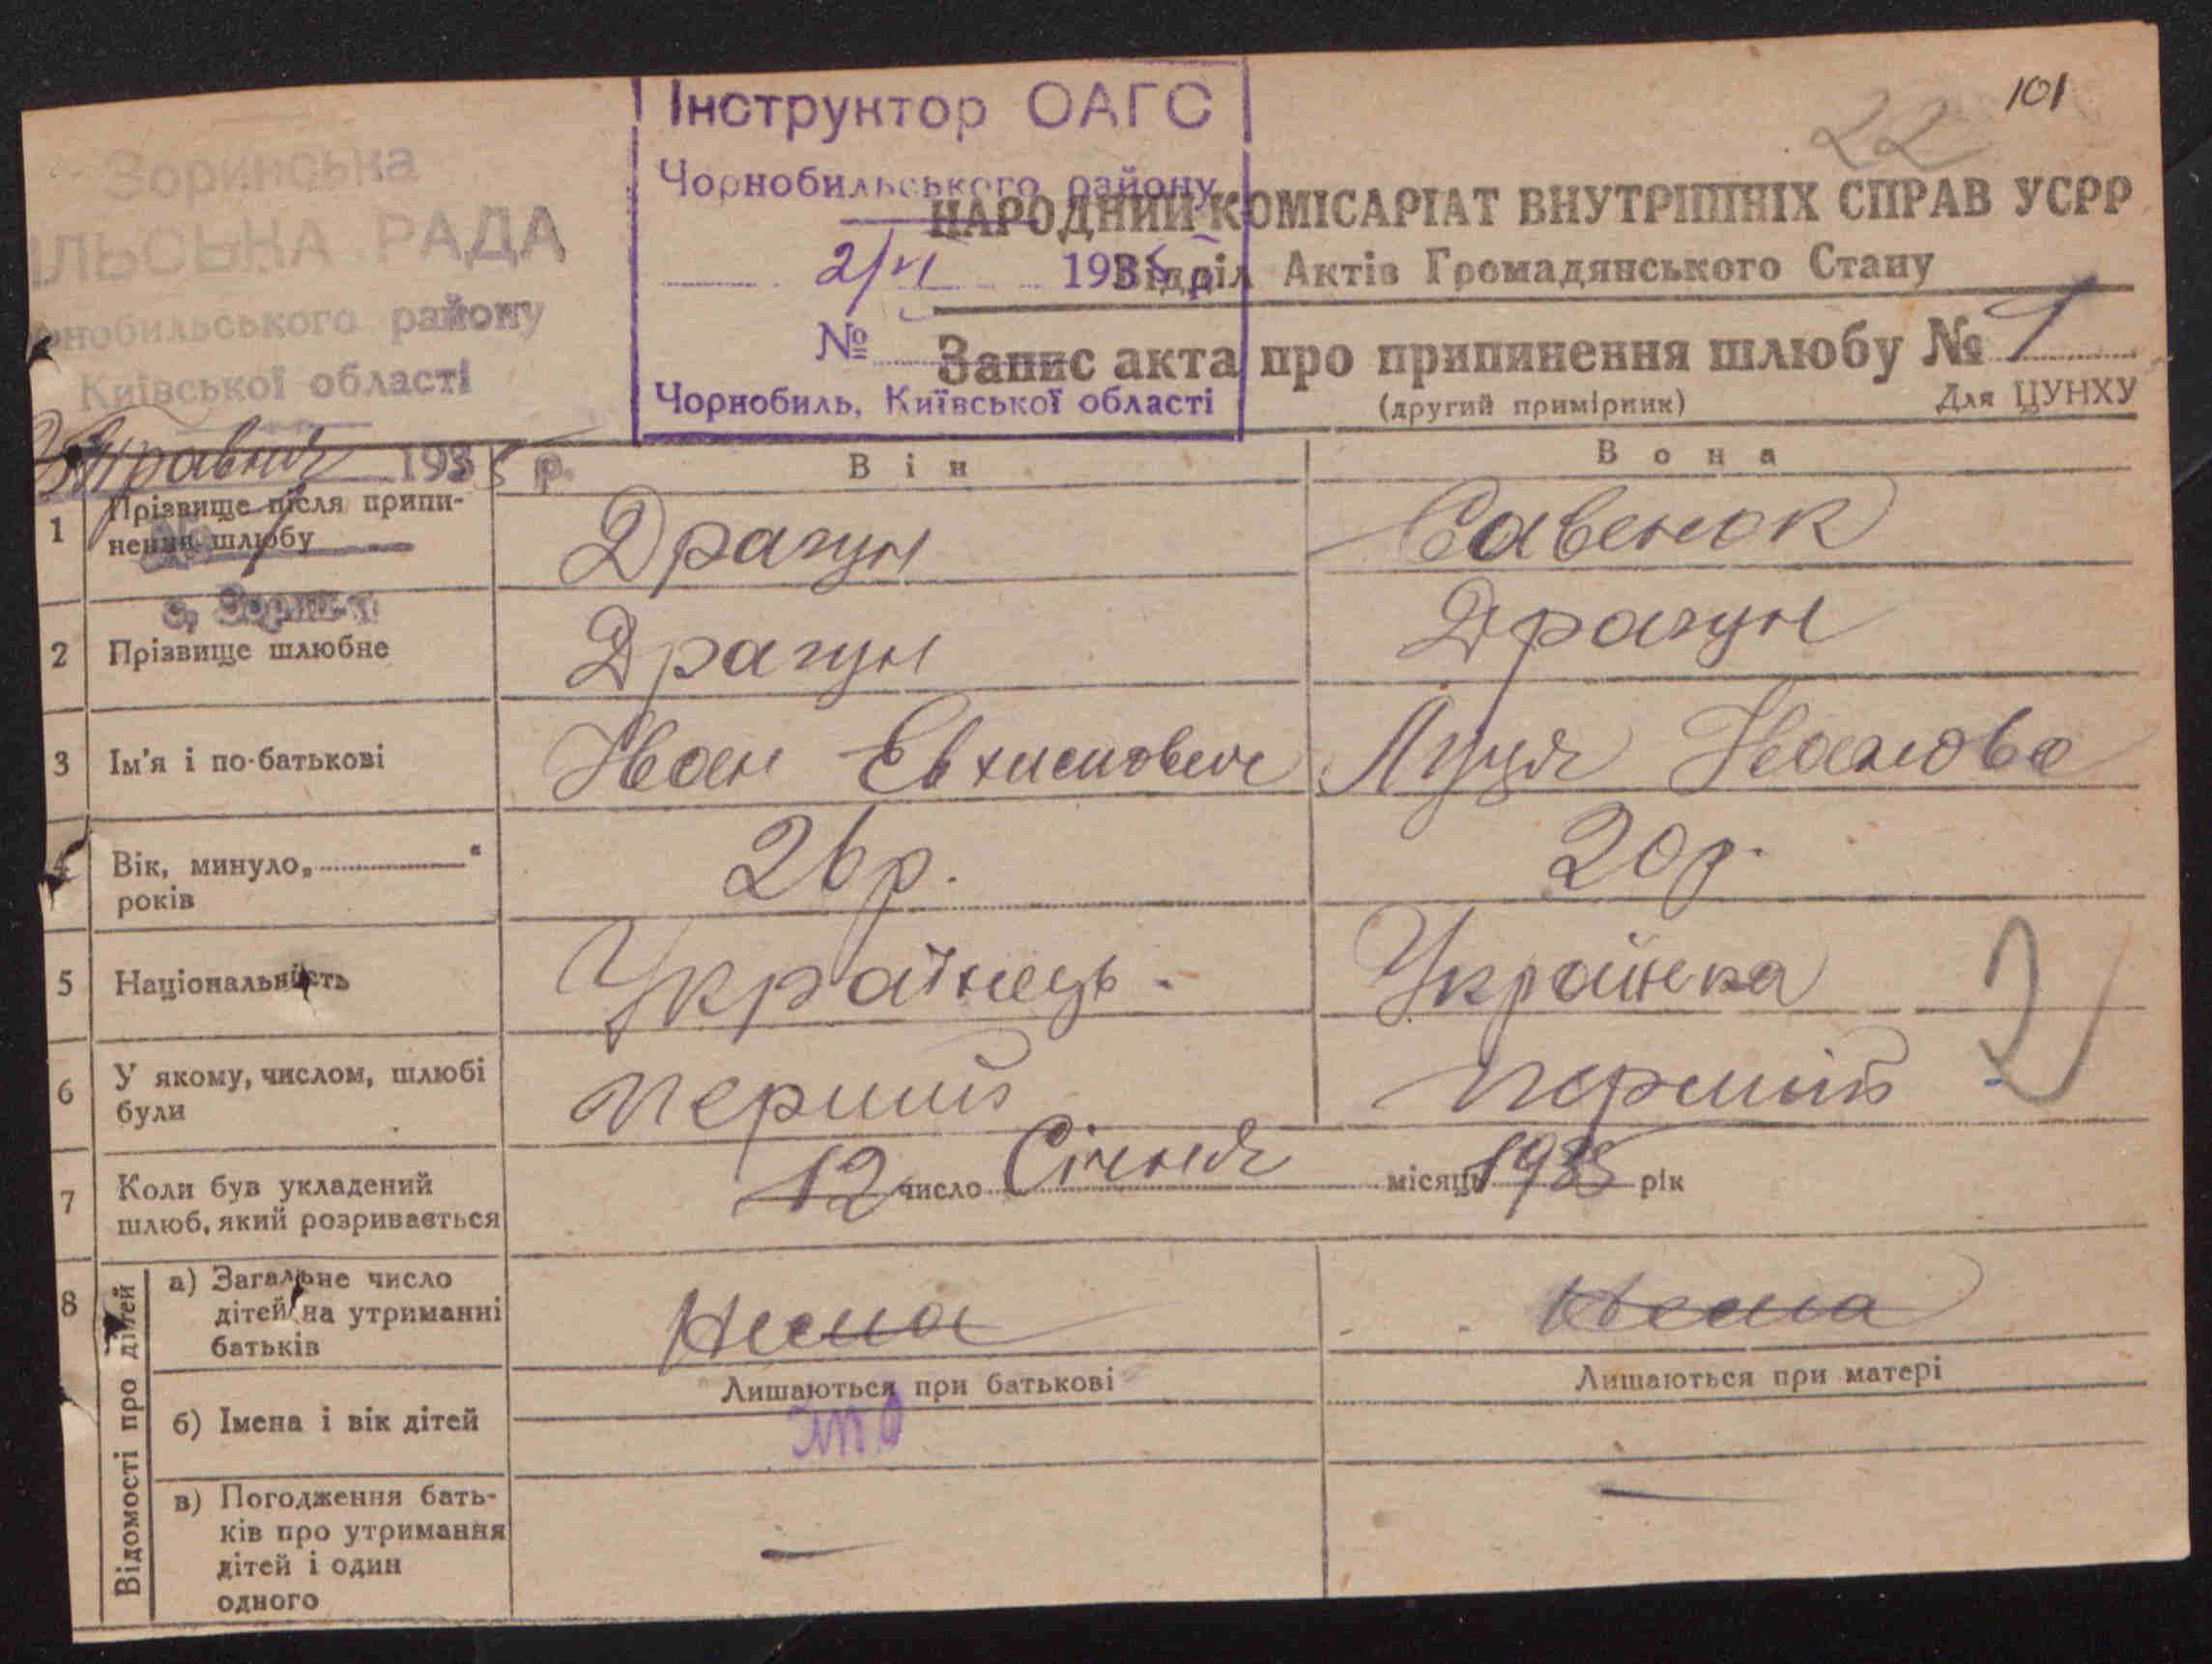 101
22
Зоринська
ІЛЬСЬКА РАДА
рнобильського району
Київської області
Травня 1935 р.
Інструктор ОАГС
Чорнобильського району
2/VI 1935 р.
№
Чорнобиль, Київської області
НАРОДНИЙ КОМІСАРІАТ ВНУТРІШНІХ СПРАВ УСРР
Відділ Актів Громадянського Стану
Запис акта про припинення шлюбу № 1
(другий примірник) Для ЦУНХУ
Він Вона
1 Прізвище після припи-
нення шлюбу
Драгун Савенок
2 Прізвище шлюбне Драгун Драгун
3 Ім'я і по-батькові Іван Евхимович Луця Іванова
4 Вік, минуло „ “
років
26 р. 20 р.
5 Національність Українець Українка
2
6 У якому, числом, шлюбі
були
перший перший
7 Коли був укладений
шлюб, який розривається
12 число Січня місяць 1935 рік
8 Відомості про дітей
а) Загальне число
дітей на утриманні
батьків
Нема Нема
Лишаються при батькові Лишаються при матері
б) Імена і вік дітей
в) Погодження бать-
ків про утримання
дітей і один
одного
— —